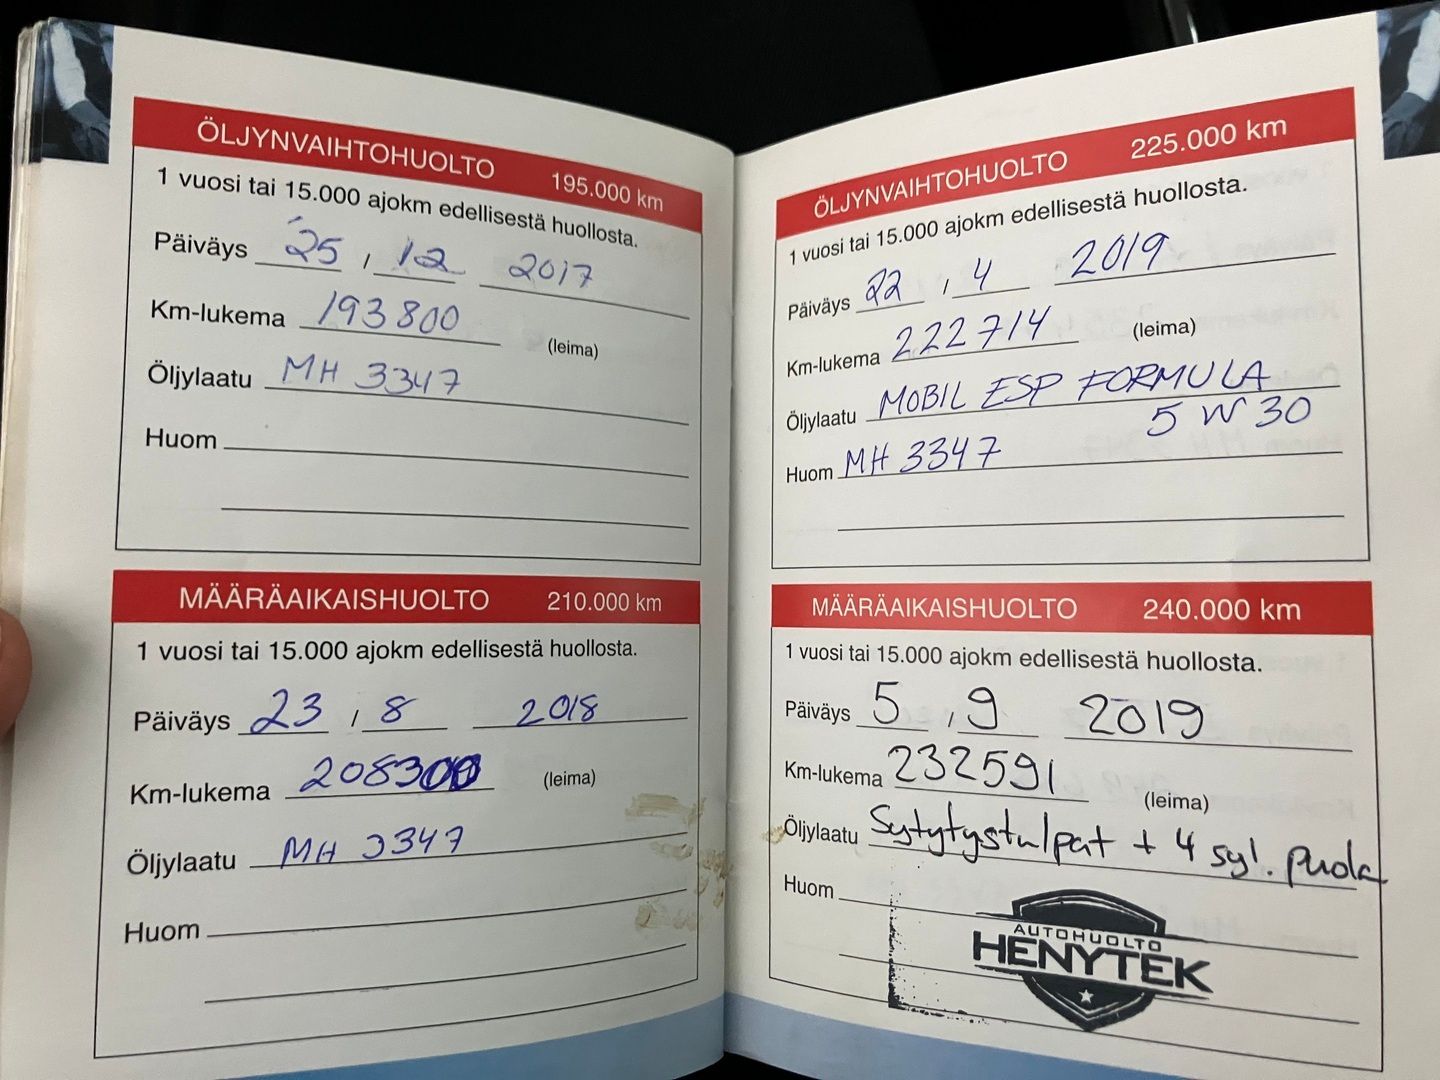 ÖLJYNVAIHTOHUOLTO 195.000 km
1 vuosi tai 15.000 ajokm edellisestä huollosta.
Päiväys 25 / 12 2017
Km-lukema 193800 (leima)
Öljylaatu MH 3347
Huom
MÄÄRÄAIKAISHUOLTO 210.000 km
1 vuosi tai 15.000 ajokm edellisestä huollosta.
Päiväys 23 / 8 2018
Km-lukema 208300 (leima)
Öljylaatu MH 3347
Huom
ÖLJYNVAIHTOHUOLTO 225.000 km
1 vuosi tai 15.000 ajokm edellisestä huollosta.
Päiväys 22 / 4 2019
Km-lukema 222714 (leima)
Öljylaatu MOBIL ESP FORMULA
5 W 30
Huom MH 3347
MÄÄRÄAIKAISHUOLTO 240.000 km
1 vuosi tai 15.000 ajokm edellisestä huollosta.
Päiväys 5 / 9 2019
Km-lukema 232591 (leima)
Öljylaatu Sytytystulpat + 4 syl. puola
Huom
AUTOHUOLTO
HENYTEK